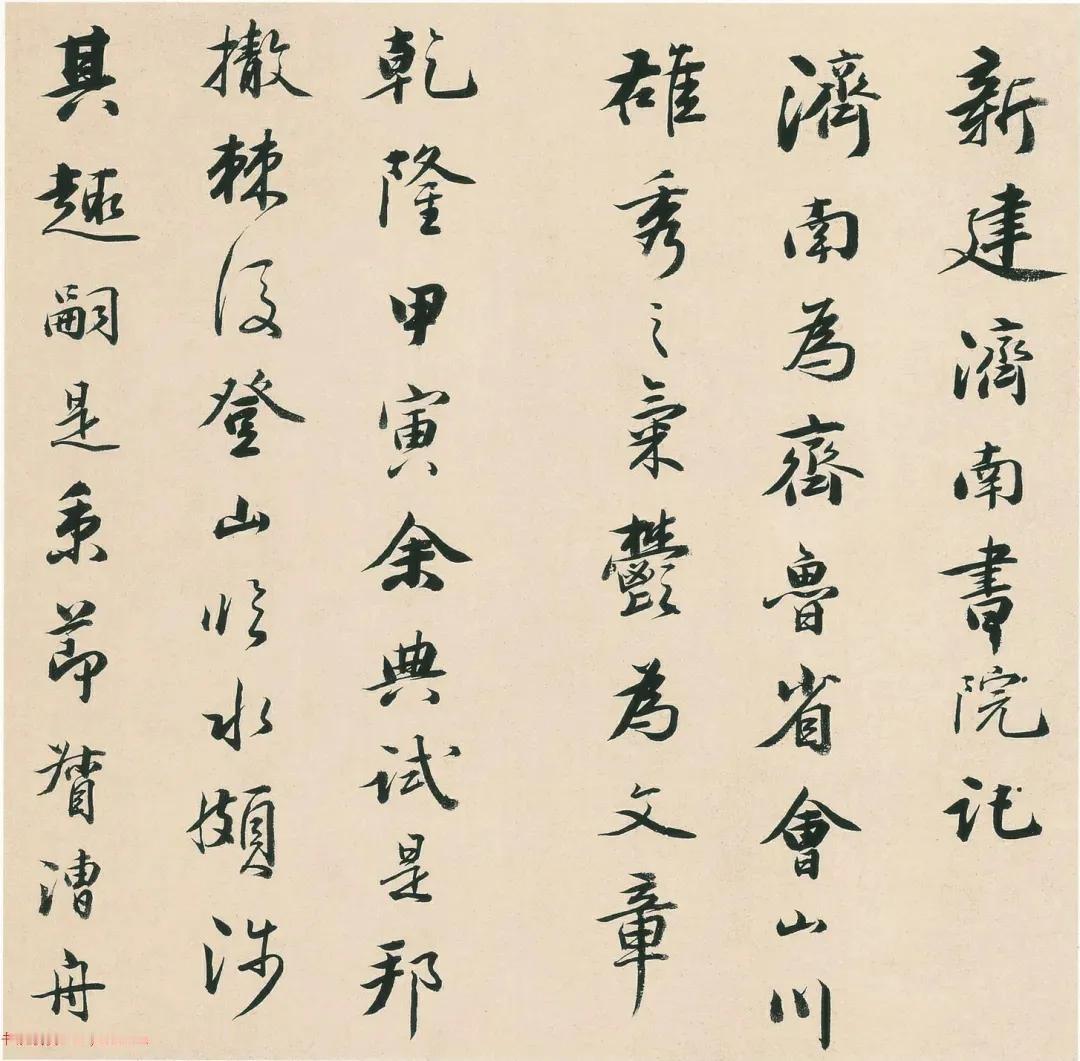 新建濟南書院記
濟南為齊魯省會山川
雄秀之氣鬱為文章
乾隆甲寅余典試是邦
撤棘後登山臨水頗涉
其趣嗣是秉節督漕舟